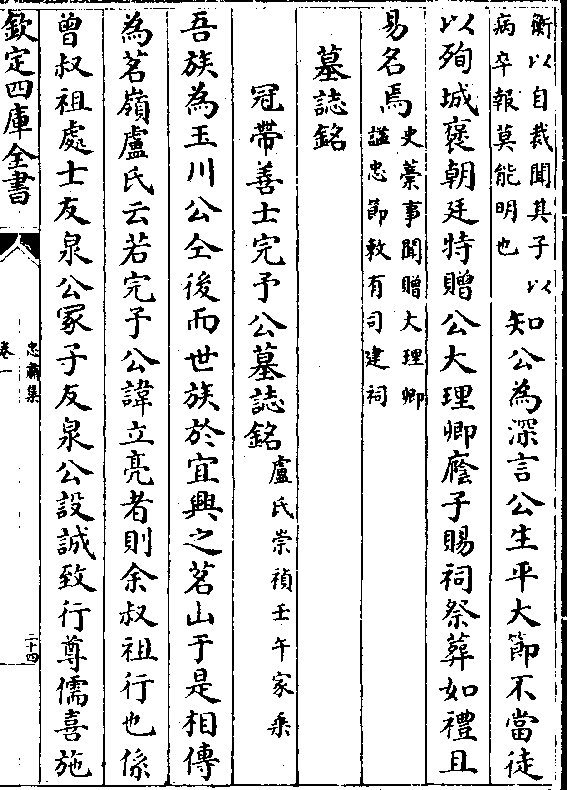 衡以自裁聞其子以
病卒報莫能明也
知公為深言公生平大節不當徒
以殉城褒朝廷特贈公大理卿廕子賜祠祭葬如禮且
易名焉
史藁事聞贈大理卿
諡忠節敕有司建祠
墓誌銘
冠帶善士完予公墓誌銘
盧氏崇禎壬午家乘
吾族為玉川公仝後而世族於宜興之茗山于是相傳
為茗嶺盧氏云若完子公諱立亮者則余叔祖行也係
曾叔祖處士友泉公冢子友泉公設誠致行尊儒喜施
欽定四庫全書
忠肅集
卷一
二十四